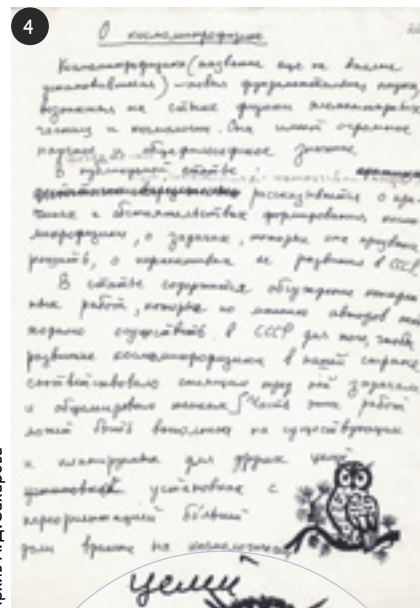 4
О космомикрофизике
Космомикрофизика (название еще не вполне
установившееся) — новая фундаментальная наука,
возникшая на стыке физики элементарных
частиц и космологии. Она имеет огромное
научное и общефилософское значение.
В публикуемой статье
рассказывается о при-
чинах и обстоятельствах формирования космо-
микрофизики, о задачах, которые она призвана
решить, о перспективах ее развития в СССР.
В статье содержится обсуждение конкрет-
ных работ, которые по мнению авторов
необходимо осуществить в СССР для того, чтобы
развитие космомикрофизики в нашей стране
соответствовало стоящим пред ней задачам
и общемировым Часть этих работ
может быть выполнена на существующих
и планируемых для других целей
установках с
переориентацией большей
доли времени на космологические
цели
Архив А.Д. Сахарова